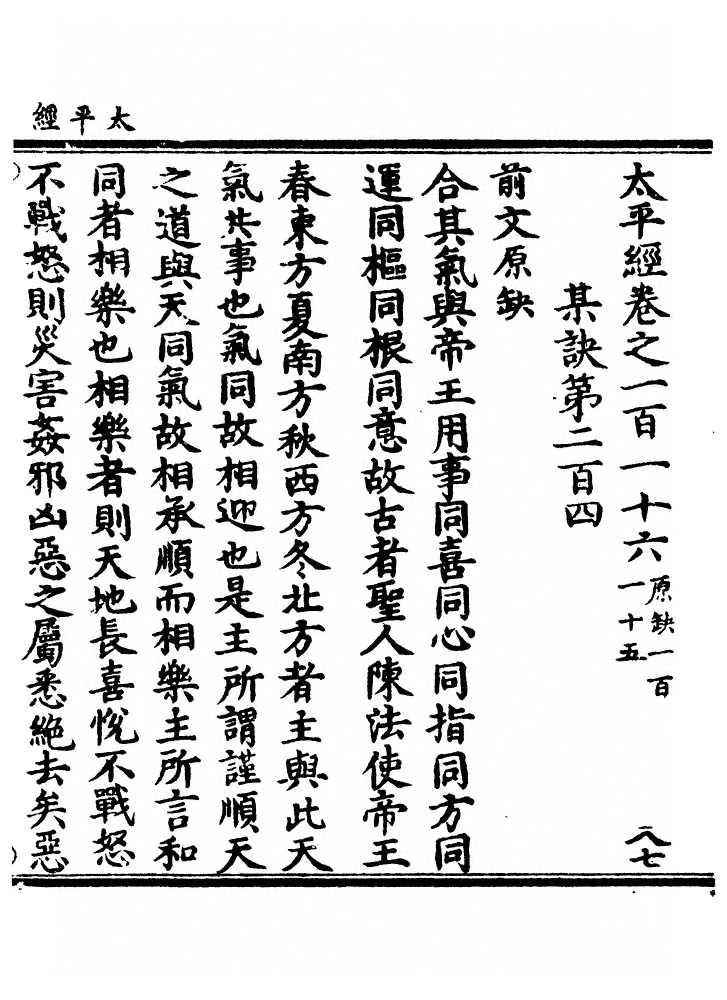 太平經
太平經卷之一百一十六 原缺一百一十五 八七
某訣第二百四
前文原缺
合其氣與帝王用事同喜同心同指同方同
運同樞同根同意故古者聖人陳法使帝王
春東方夏南方秋西方冬北方者主與此天
氣共事也氣同故相迎也是主所謂謹順天
之道與天同氣故相承順而相樂主所言和
同者相樂也相樂者則天地長喜悅不戰怒
不戰怒則災害姦邪凶惡之屬悉絕去矣惡